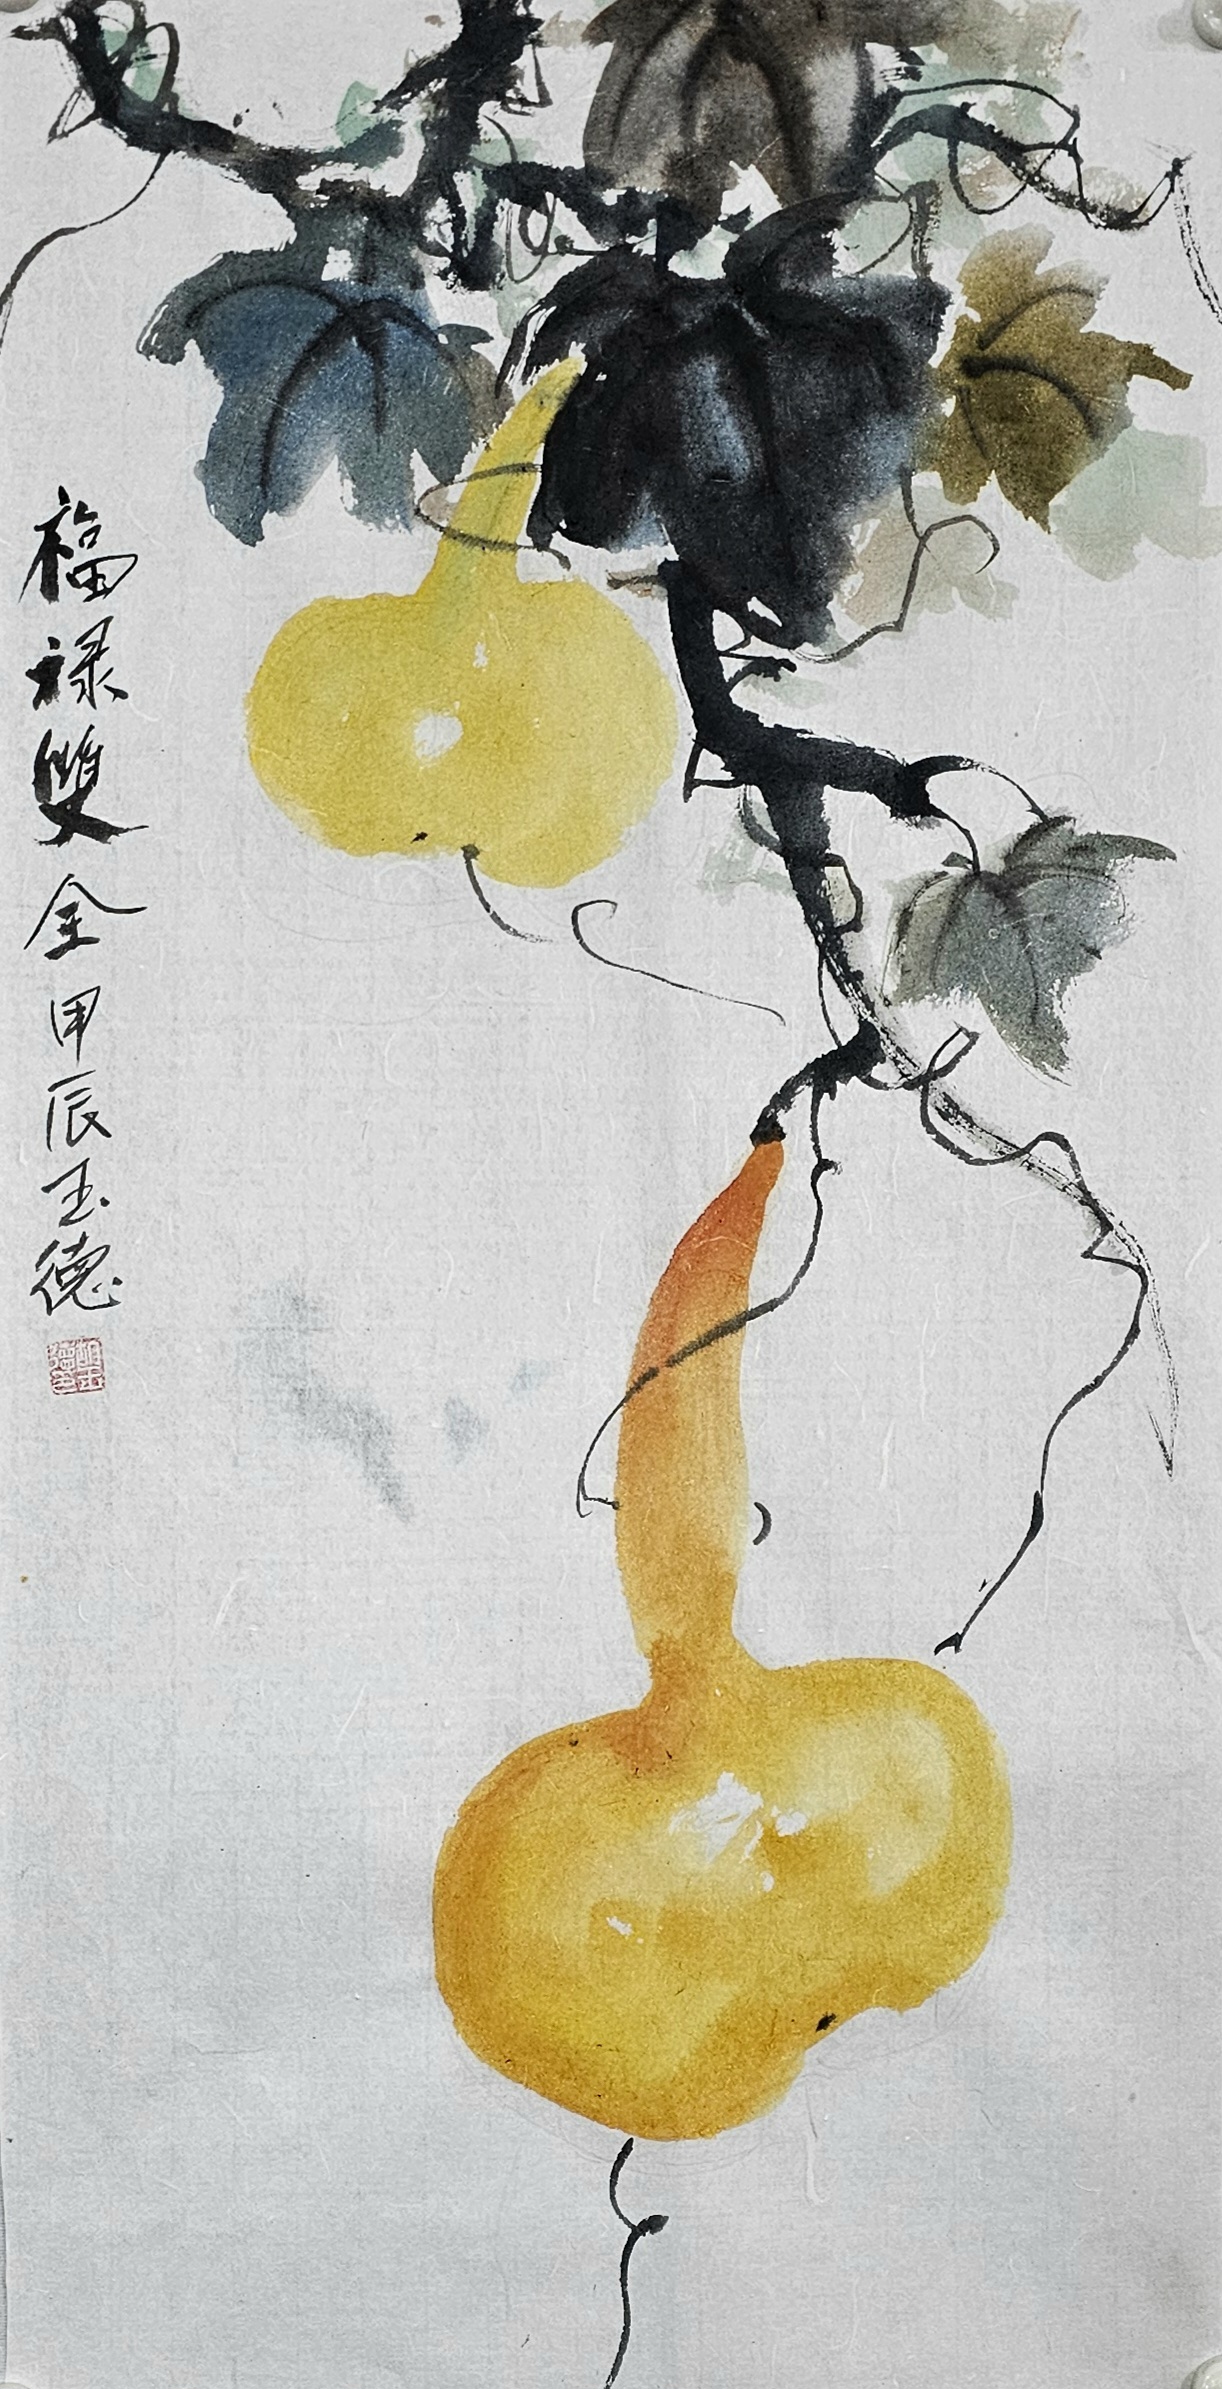 福禄雙全甲辰玉德